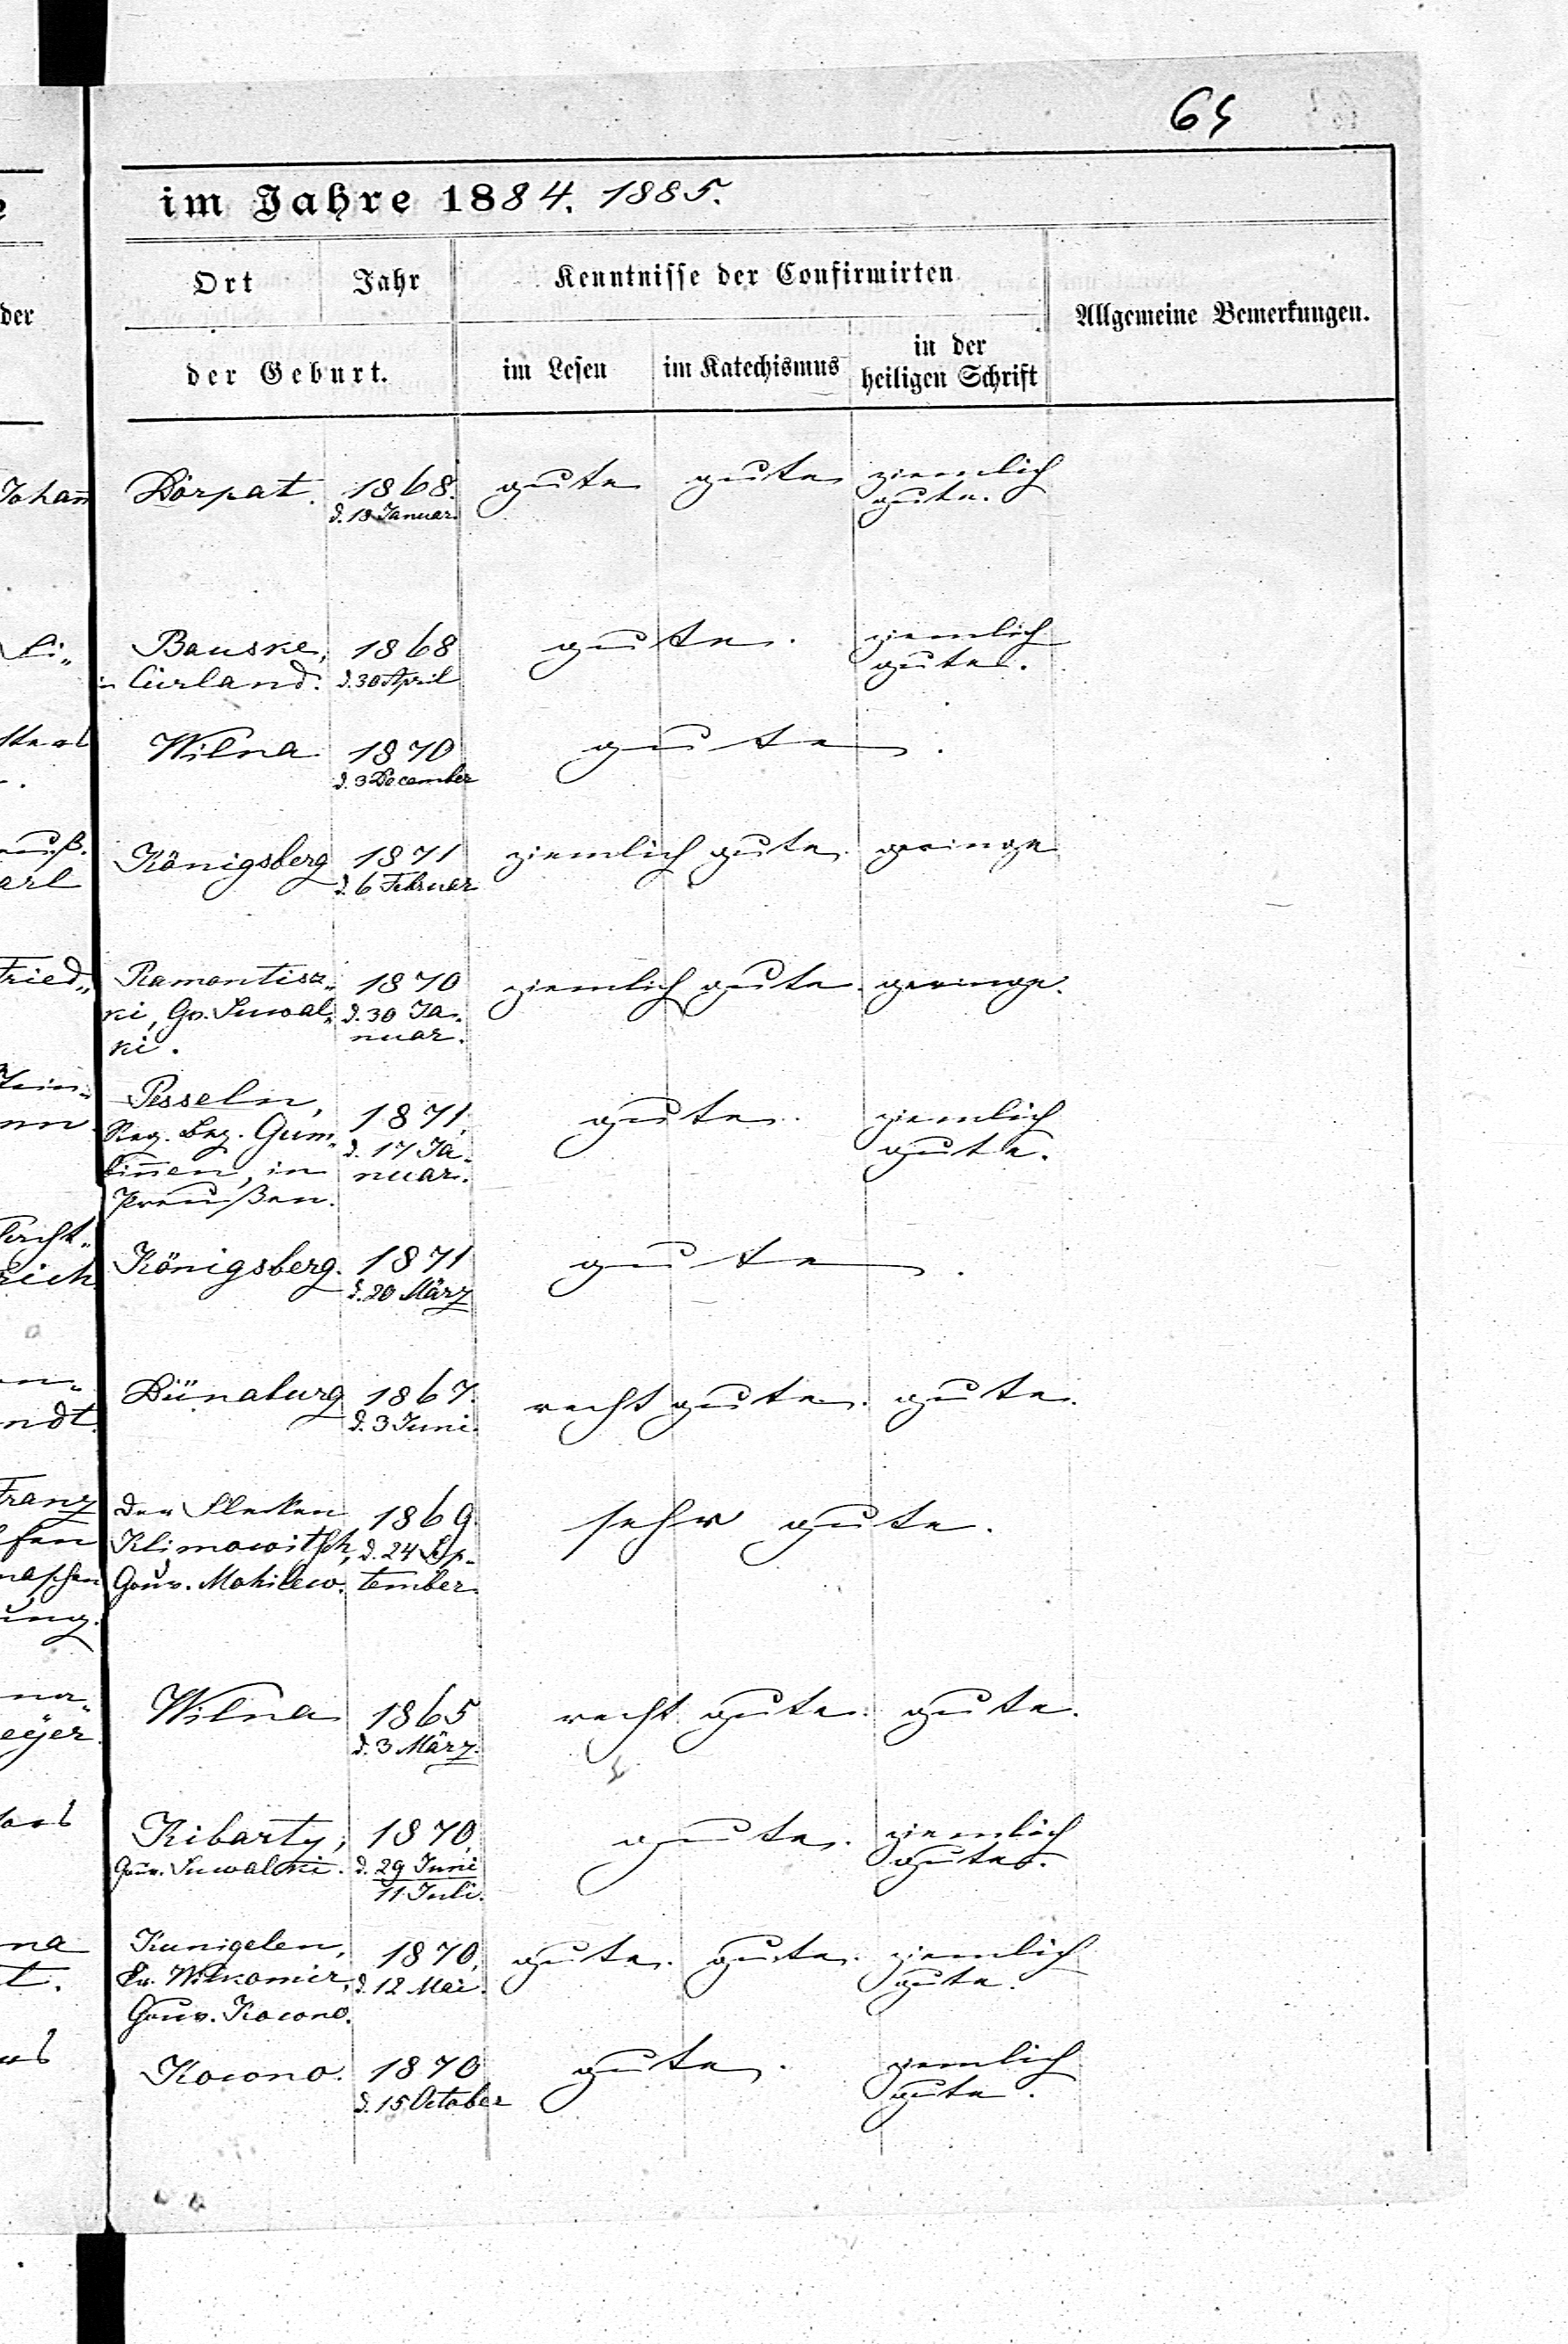 65
im Jahre 1884. 1885.
Ort Jahr Kenntnisse der Confirmirten Allgemeine Bemerkungen.
der
der Geburt. im Lesen im Katechismus in der
heiligen Schrift
Johañ Dorpat. 1868. gute gute ziemlich
d. 18 Januar. gute.
Bauske, 1868 gute. ziemlich
in Curland. d. 30 April gute.
Wilna 1870 gute.
d. 3 December
Königsberg 1871 ziemlich gute. geringe
arl d. 6 Februar
Fried„ Ramontisz„ 1870 ziemlich gute. geringe.
ki, Gv. Suwal„ d. 30 Ja.
ki. nuar.
Pesseln, 1871, gute. ziemlich
Reg. Bez. Gum„ d. 17 Ja. gute.
biñen, in nuar.
Preußen.
Königsberg. 1871 gute.
rich d. 20 März
Dünaburg 1867. recht gute. gute.
ndt. d. 3 Juni.
Franz der Flecken 1869. sehr gute.
Klimowitsch, d. 24 Sep.
Gouv. Mohilew. tember.
Wilna 1865 recht gute. gute.
eÿer. d. 3 März.
Kibarty, 1870, gute. ziemlich
Gouv. Suwalki. d. 29 Juni gute.
11 Juli.
na Kunigelen, 1870, gute. gute. ziemlich
t. Kr. Wilkomir, d. 12 Mai. gute.
Gouv. Kowno.
Kowno. 1870 gute. ziemlich
d. 15 October gute.